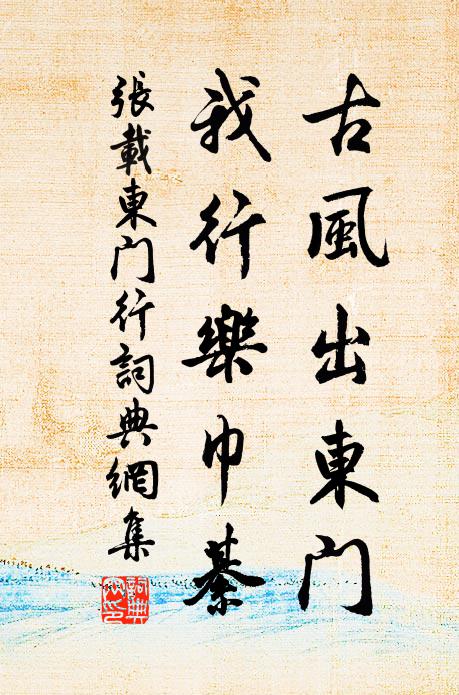 古風出東門
我行樂巾綦
張載東門行詞典網集